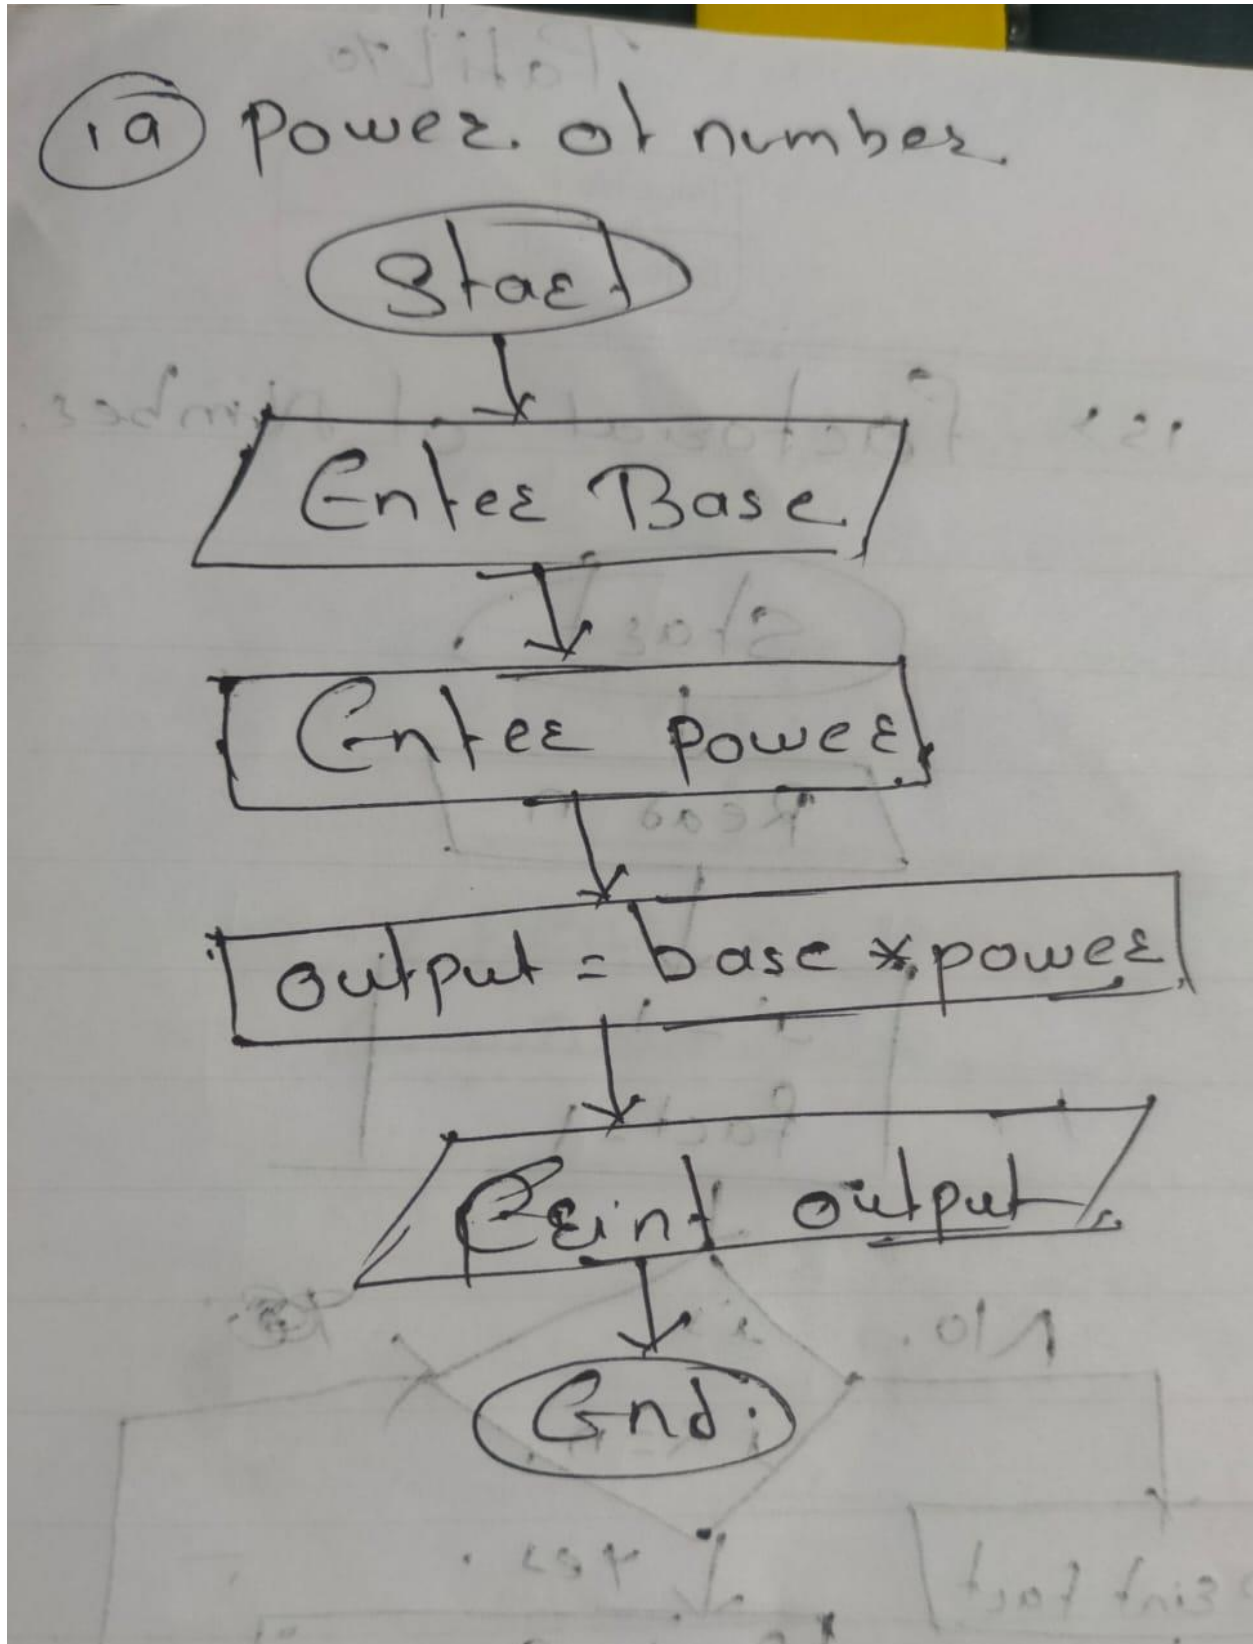 1a Power. of number.
Start
Enter Base
Enter power
output = base * power
Print output
End.